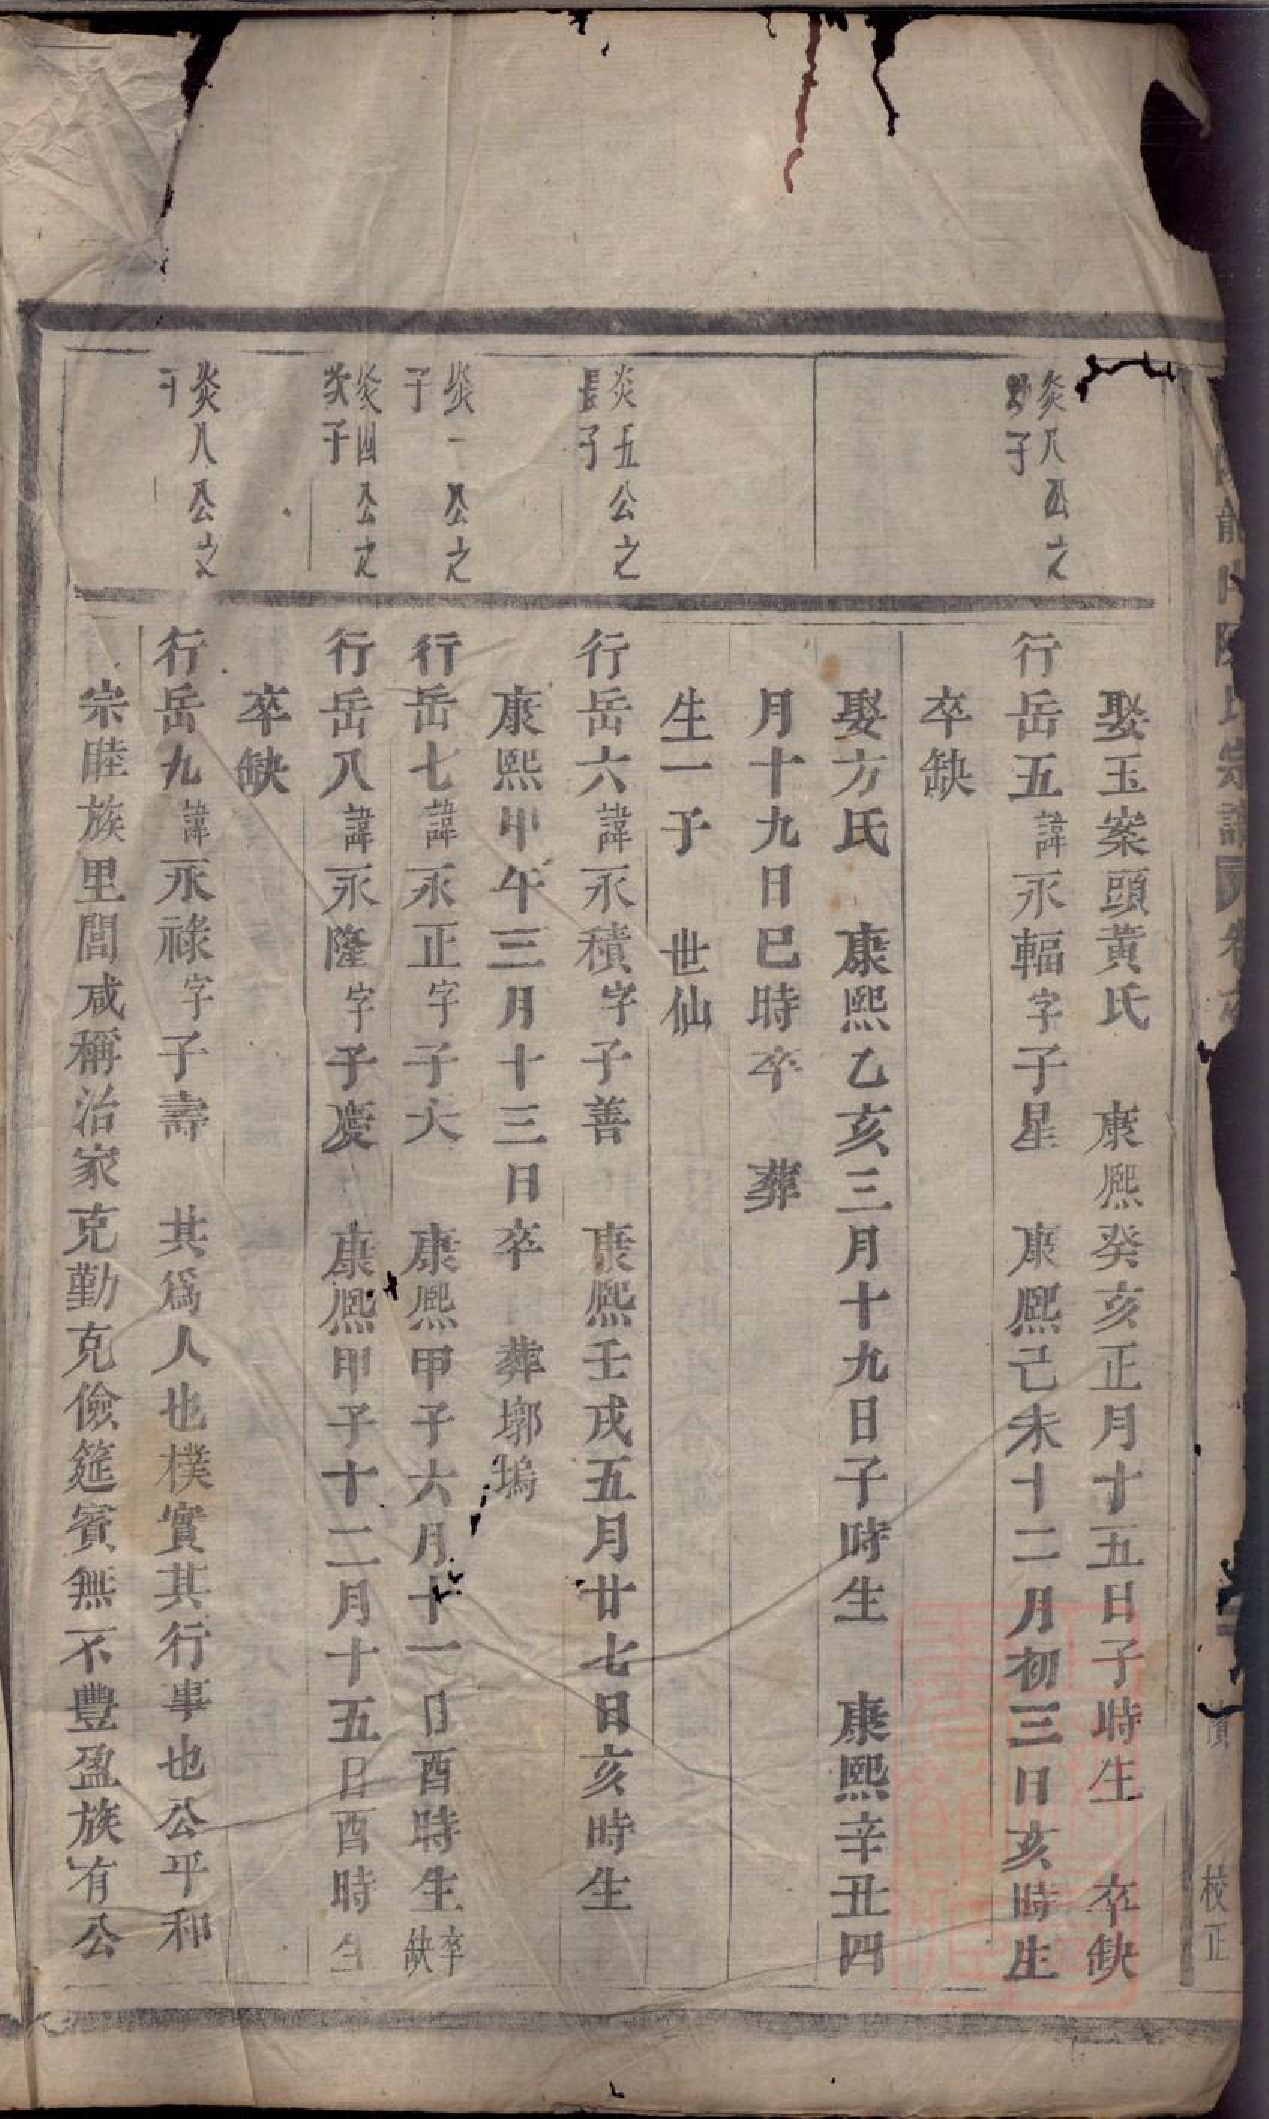 娶玉案頭黃氏　康熙癸亥正月十五日子時生　卒缺
炎八公之
幼子
行岳五諱永輻字子星　康熙己未十二月初三日亥時生
卒缺
娶方氏　康熙乙亥三月十九日子時生　康熙辛丑四
月十九日巳時卒　葬
生一子　世仙
炎五公之
長子
行岳六諱永積字子善　康熙壬戌五月廿七日亥時生
康熙甲午三月十三日卒　葬墎塢
炎一公之
子
行岳七諱永正字子大　康熙甲子六月十一日酉時生卒缺
炎四公之
次子
行岳八諱永隆字子慶　康熙甲子十二月十五日酉時生
卒缺
炎八公之
子
行岳九諱永祿字子壽　其為人也樸實其行事也公平和
宗睦族里閭咸稱治家克勤克儉筵賓無不豐盈族有公
龍山陳氏宗譜
校正